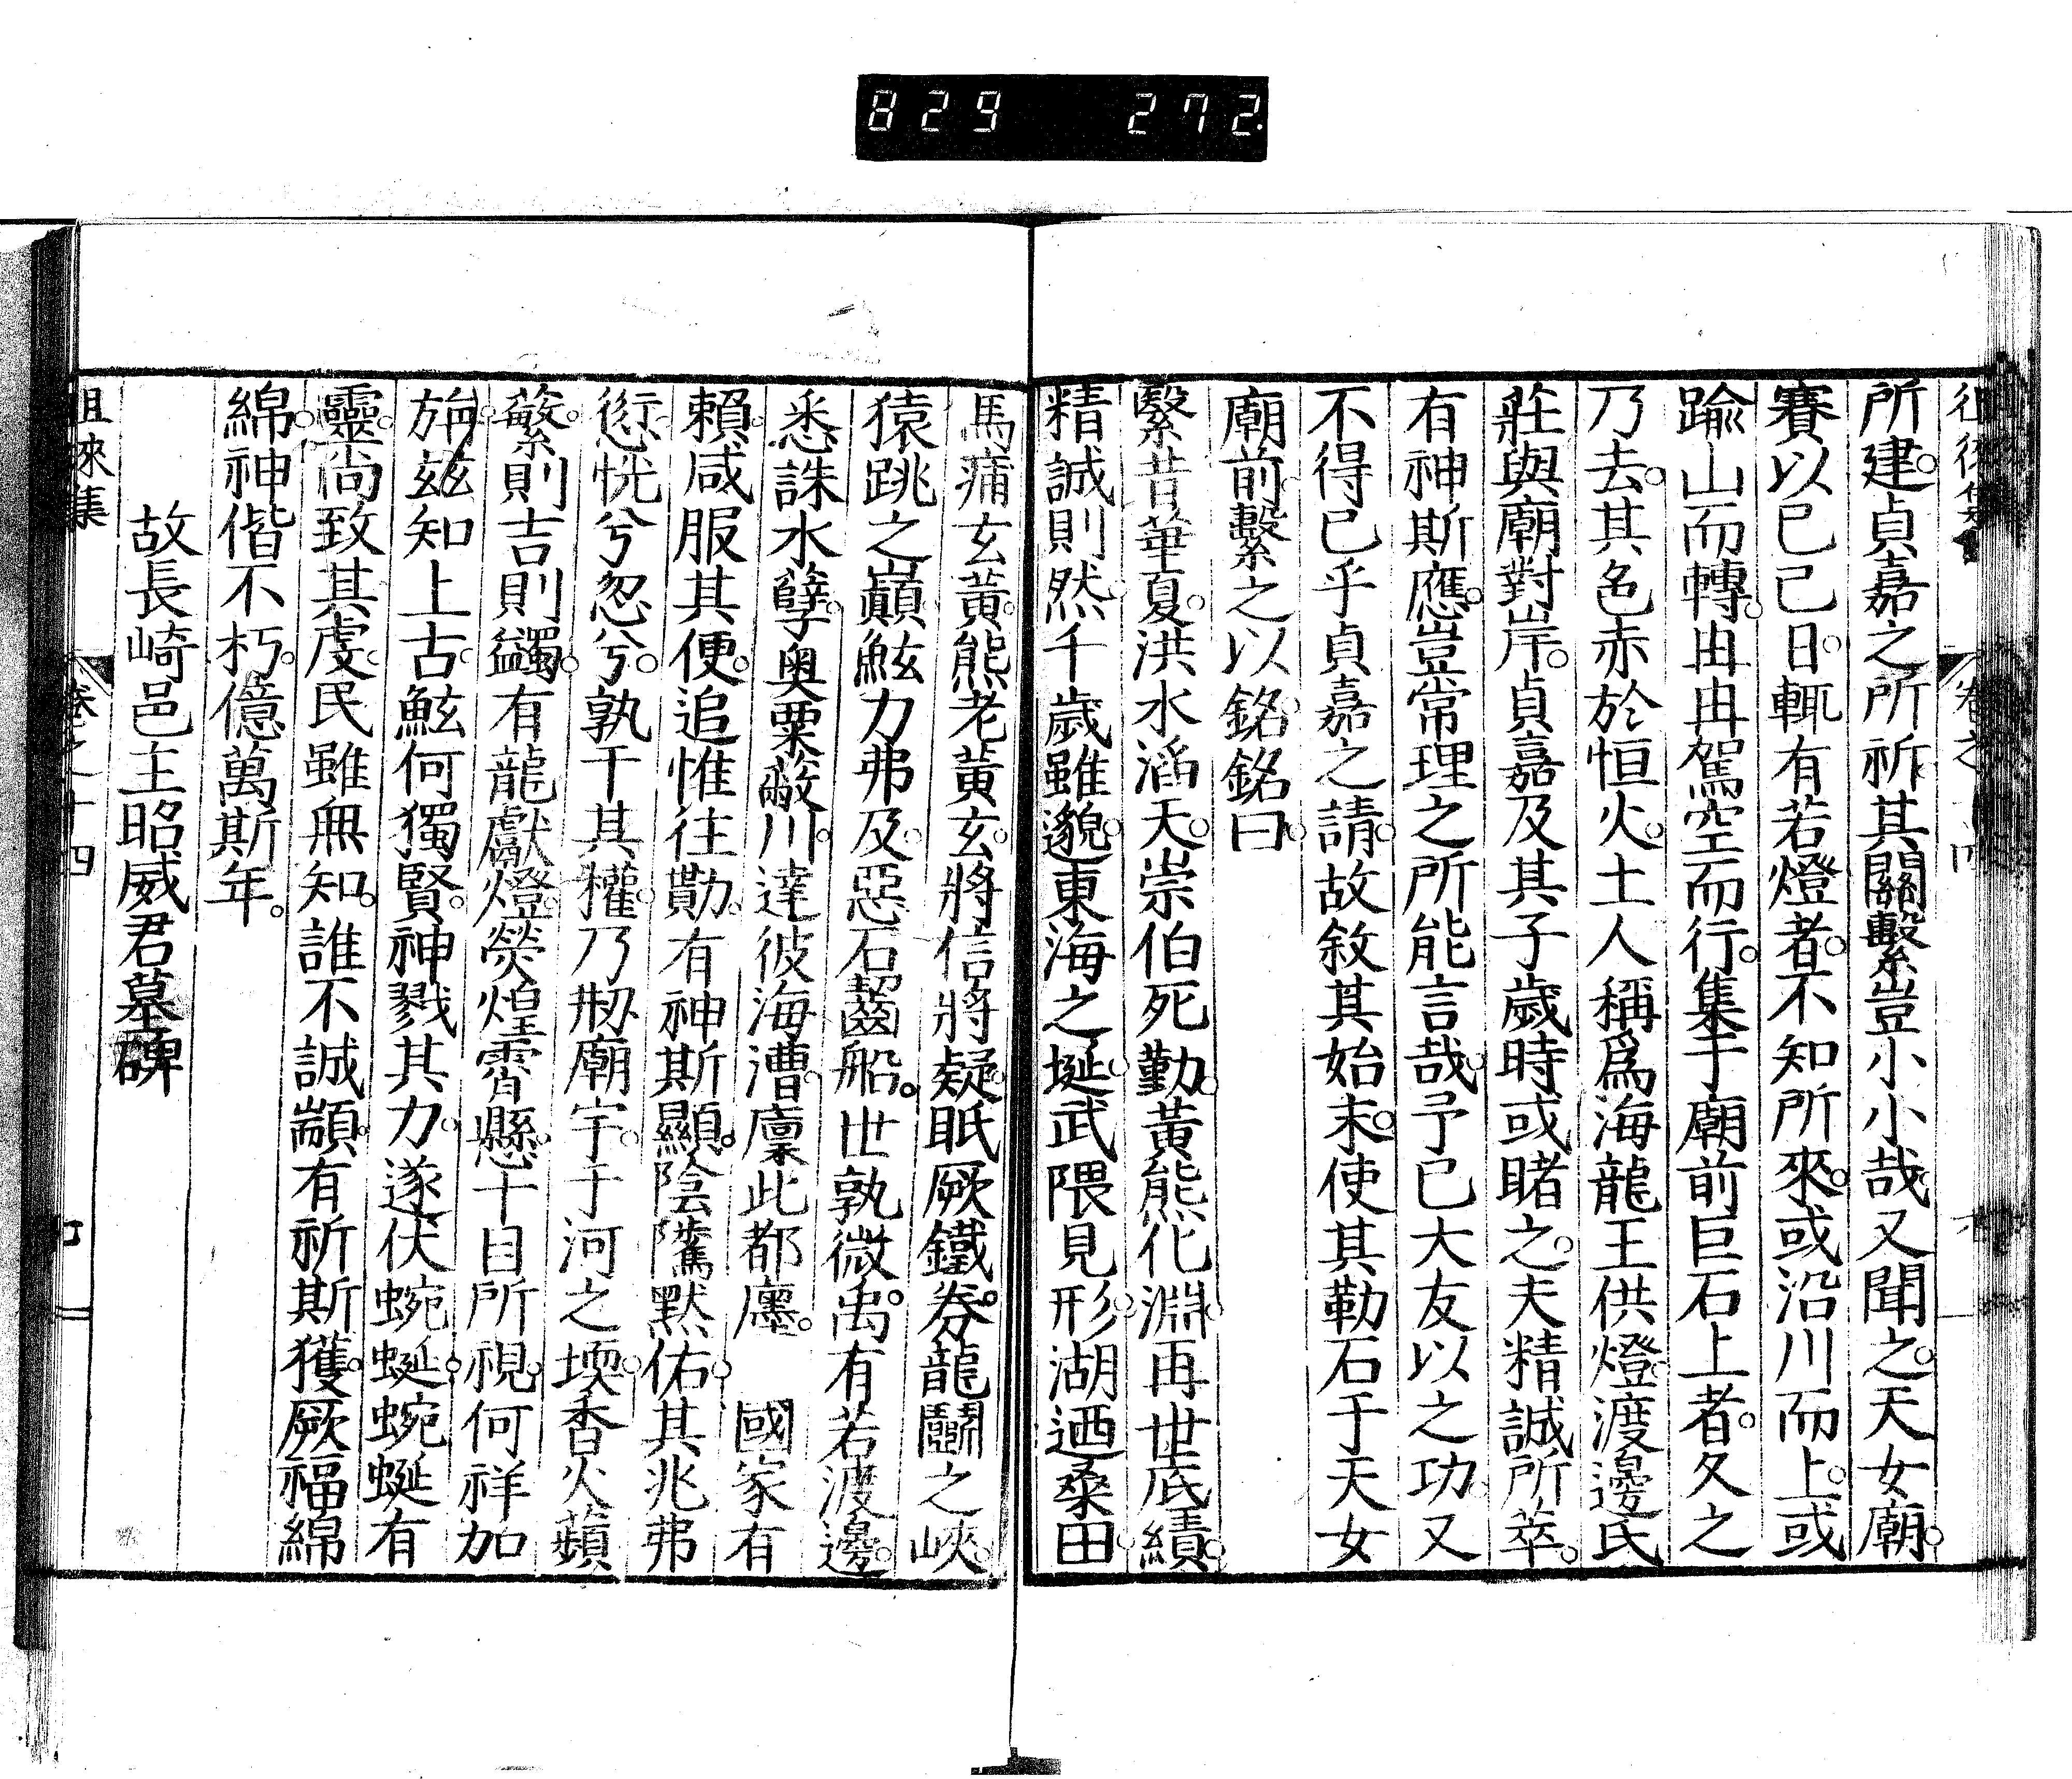 829 272.
所建。貞嘉之所祈其關繫豈小小哉又聞之。天女廟。
賽以己巳日。輒有若燈者。不知所來。或沿川而上。或
踰山而轉。冉冉駕空而行。集于廟前巨石上者。久之
乃去。其色赤於恒火。土人稱爲海龍王供燈。渡邊氏
莊與廟對岸。貞嘉及其子歲時或睹之。夫精誠所萃。
有神斯應。豈常理之所能言哉。予已大友以之功。又
不得已乎貞嘉之請。故敘其始末。使其勒石于天女
廟前。繫之以銘。銘曰。
繄昔華夏。洪水滔天。崇伯死勤。黃熊化淵。再世底績。
精誠則然。千歲雖邈。東海之埏。武隈見形。湖迺桑田。
馬痡玄黃。熊老黃玄。將信將疑。眂厥鐵券。龍鬭之峽。
猿跳之巔。鮌力弗及。惡石齧船。世孰微禹。有若渡邊。
悉誅水孼。奥粟蔽川。達彼海漕。廩此都廛。國家有
賴。咸服其便。追惟往勩。有神斯顯。陰隲默佑。其兆弗
愆。恍兮忽兮。孰干其權。乃刱廟宇。于河之堧。香火蘋
蘩。則吉則蠲。有龍獻燈。熒煌霄懸。十目所視。何祥加
旃。玆知上古。鮌何獨賢。神戮其力。遂伏蜿蜒。蜿蜒有
靈。尚致其虔。民雖無知。誰不誠顓。有祈斯獲。厥福綿
綿。神偕不朽。億萬斯年。
故長崎邑主昭威君墓碑
徂徠集 卷之十四